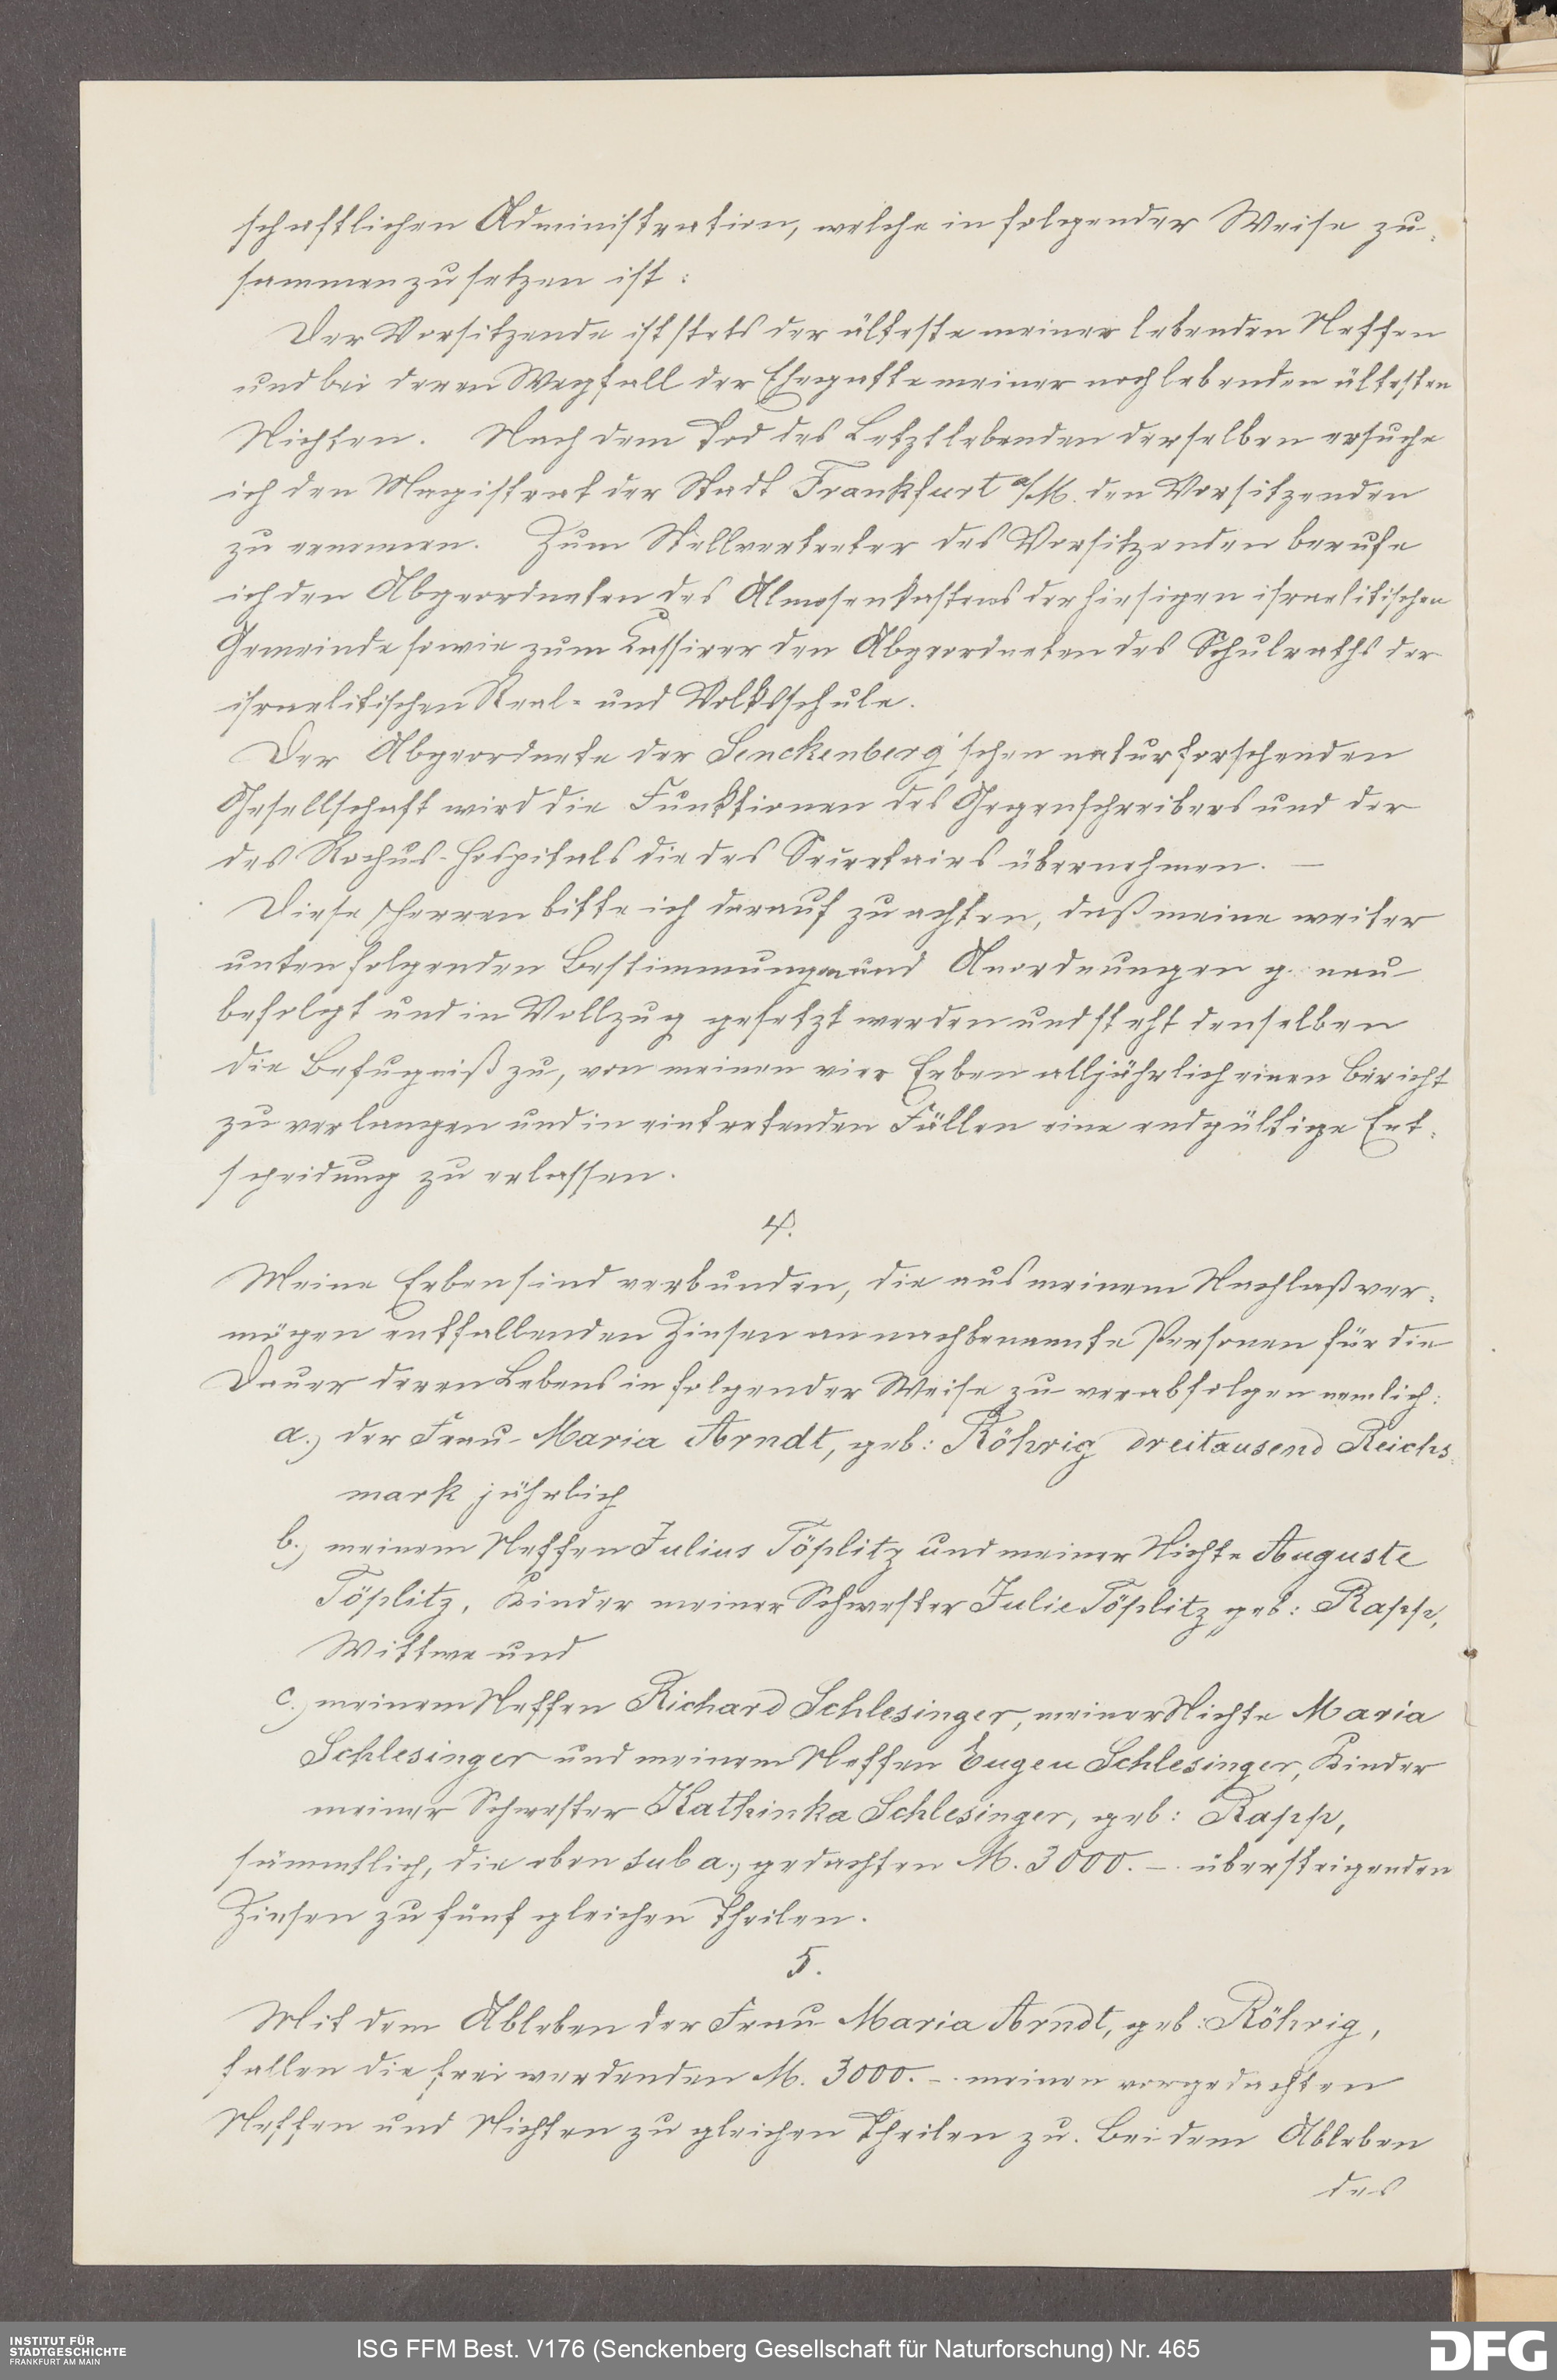 schaftlichen Administration, welche in folgender Weise zu-
sammenzusetzen ist:
Der Vorsitzende ist stets der älteste meiner lebenden Neffen
und bei deren Wegfall der Ehegatte meiner noch lebenden ältesten
Nichten. Nach dem Tod des Letztlebenden derselben ersuche
ich den Magistrat der Stadt Frankfurt a/M. den Vorsitzenden
zu ernennen. Zum Stellvertreter des Vorsitzenden berufe
ich den Abgeordneten des Almosenkastens der hiesigen israelitischen
Gemeinde sowie zum Cassirer den Abgeordneten des Schulraths der
israelitischen Real- und Volksschule.
Der Abgeordnete der Senckenberg'schen naturforschenden
Gesellschaft wird die Funktionen des Gegenschreibers und der
des Rochus-Hospitals die des Secretairs übernehmen. —
Diese Herren bitte ich darauf zu achten, daß meine weiter
unten folgenden Bestimmungen und Anordnungen genau
befolgt und in Vollzug gesetzt werden und steht denselben
die Befugniß zu, von meinen vier Erben alljährlich einen Bericht
zu verlangen und in eintretenden Fällen eine endgültige Ent-
scheidung zu erlassen.
4.
Meine Erben sind verbunden, die aus meinem Nachlaßver-
mögen entfallenden Zinsen an nachbenannte Personen für die
Dauer deren Lebens in folgender Weise zu verabfolgen nemlich:
a.) der Frau Maria Arndt, geb: Röhrig dreitausend Reichs-
mark jährlich
b.) meinem Neffen Julius Töplitz und meiner Nichte Auguste
Töplitz, Kinder meiner Schwester Julie Töplitz geb: Rapp,
Wittwe und
c.) meinem Neffen Richard Schlesinger, meiner Nichte Maria
Schlesinger und meinem Neffen Eugen Schlesinger, Kinder
meiner Schwester Kathinka Schlesinger, geb: Rapp,
sämmtlich, die oben sub a.) gedachten M. 3000. —. übersteigenden
Zinsen zu fünf gleichen Theilen.
5.
Mit dem Ableben der Frau Maria Arndt, geb: Röhrig,
fallen die frei werdenden M. 3000. —. meinen vorgedachten
Neffen und Nichten zu gleichen Theilen zu. Bei dem Ableben
des
INSTITUT FÜR
STADTGESCHICHTE
FRANKFURT AM MAIN
ISG FFM Best. V176 (Senckenberg Gesellschaft für Naturforschung) Nr. 465
DFG